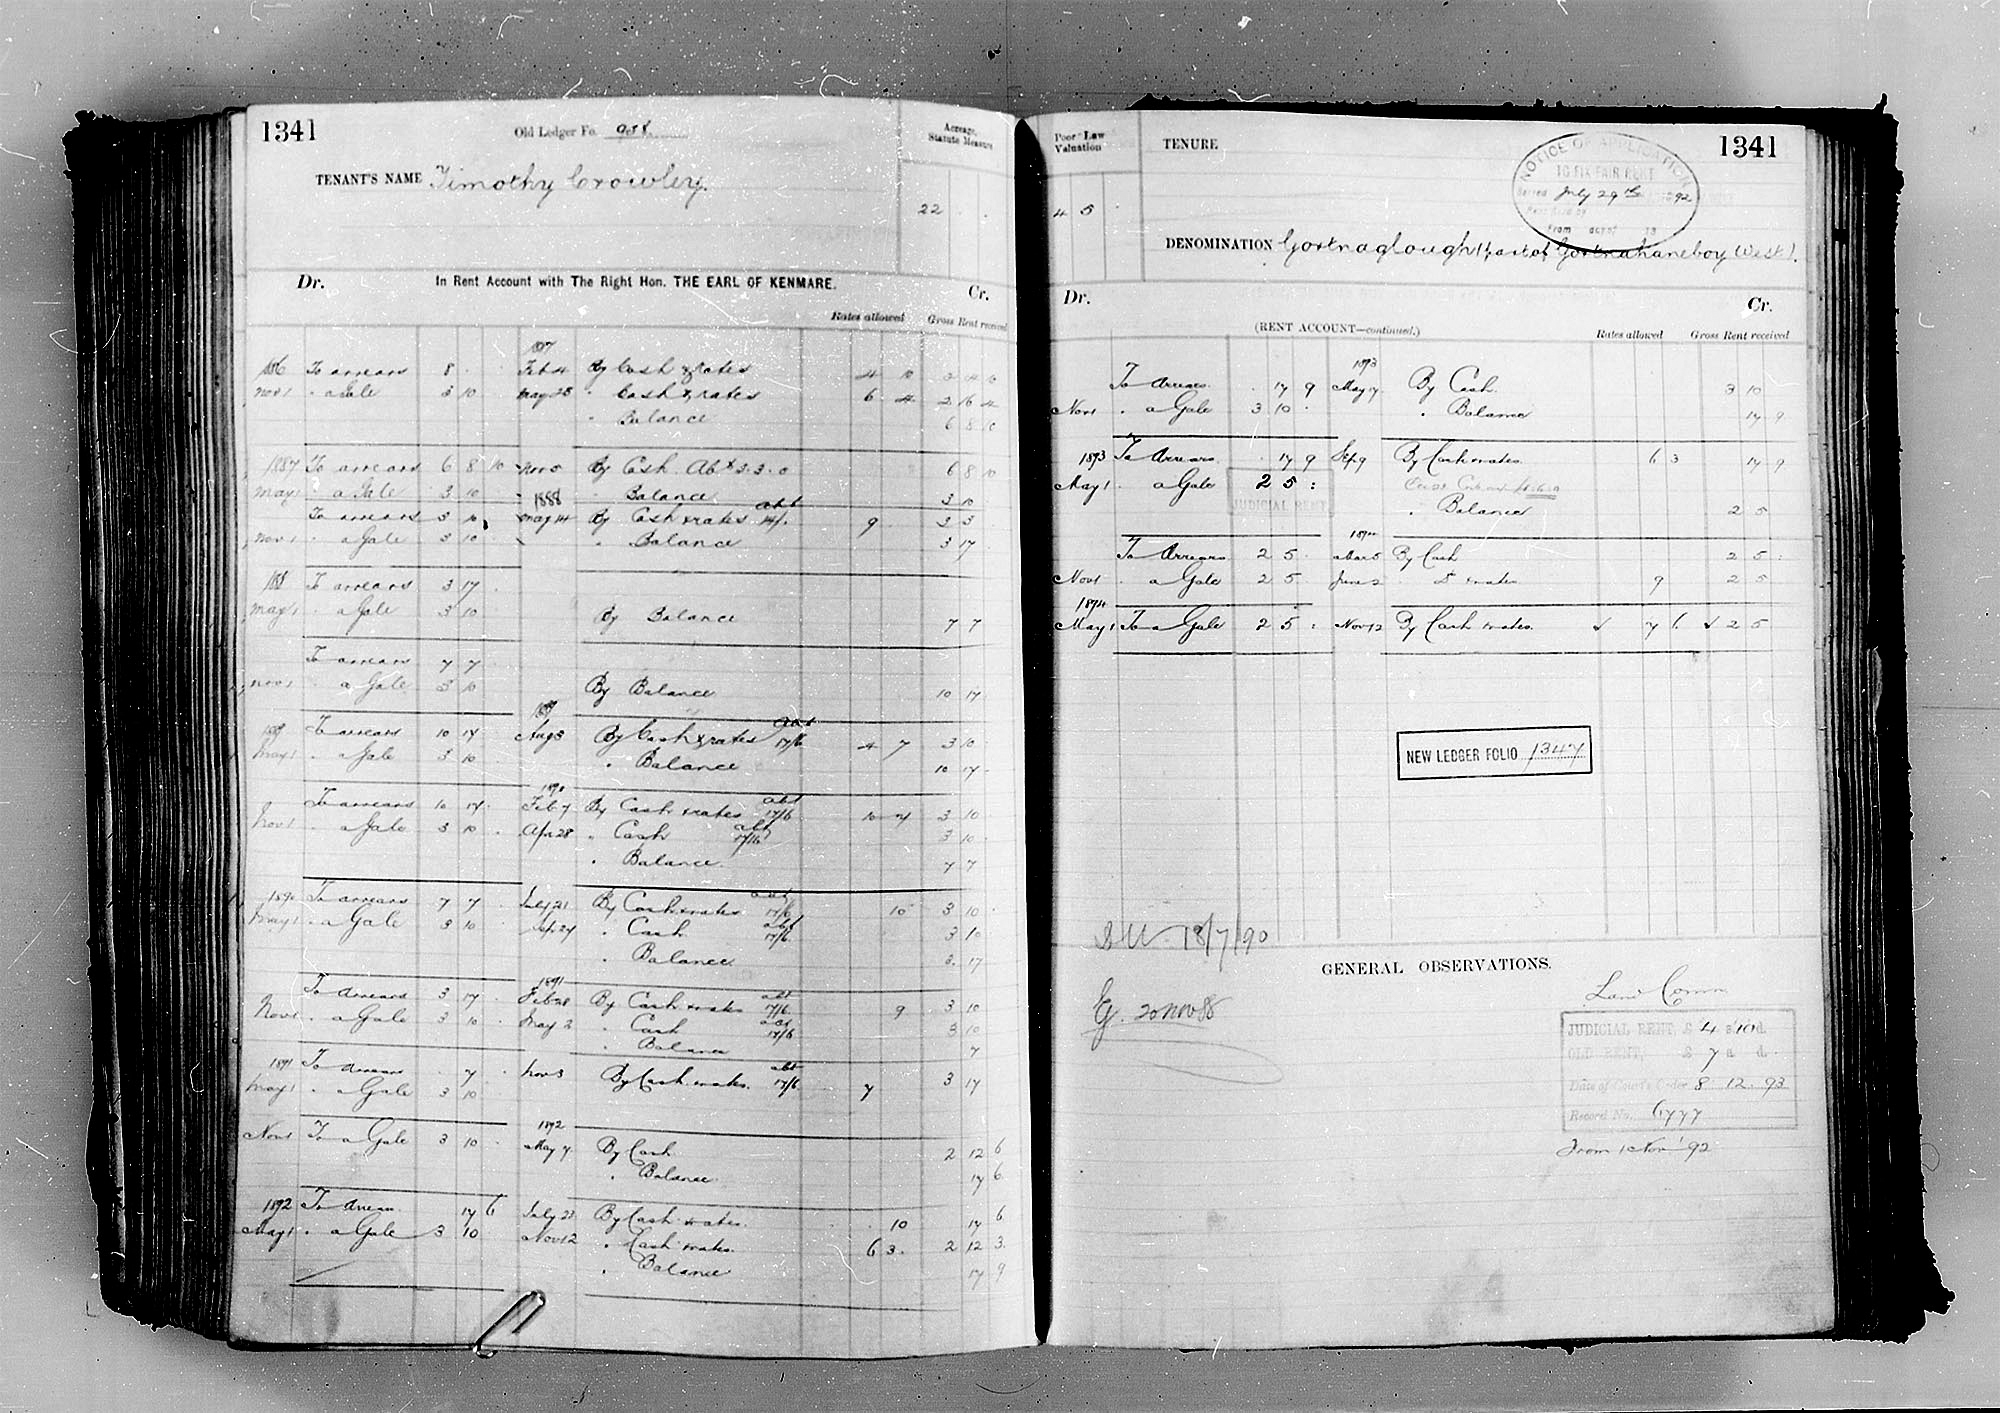 1341
Old Ledger Fo.
Acreage, Statute Measure
TENANT'S NAME Timothy Crowley.
22
Dr. In Rent Account with The Right Hon. THE EARL OF KENMARE. Cr.
Rates allowed Gross Rent received
1887
1886 To arrears 8 Feb 4 By Cash & rates 4 10
Nov 1 " a Gale 3 10 May 25 " Cash & rates 6 4 2 16 4
" Balance 6 8 10
1887 To arrears 6 8 10 Nov 5 By Cash Abt 3.3.0 6 8 10
May 1 " a Gale 3 10 " Balance 3 10
1888
To arrears 3 10 May 14 By Cash & rates abt 14/. 9 3 3
Nov 1 " a Gale 3 10 " Balance 3 17
1888 To arrears 3 17
May 1 " a Gale 3 10 By Balance 7 7
To arrears 7 7
Nov 1 " a Gale 3 10 By Balance 10 17
1889
1889 To arrears 10 17 Aug 3 By Cash & rates abt 17/6 4 7 3 10
May 1 " a Gale 3 10 " Balance 10 17
1890
To arrears 10 17 Feb 7 By Cash & rates abt 17/6 10 4 3 10
Nov 1 " a Gale 3 10 Apr 28 " Cash abt 17/6 3 10
" Balance 7 7
1890 To arrears 7 7 July 21 By Cash & rates abt 17/6 10 3 10
May 1 " a Gale 3 10 Sep 24 " Cash abt 17/6 3 10
" Balance 3 17
1891
To Arrears 3 17 Feb 28 By Cash & rates abt 17/6 9 3 10
Nov 1 " a Gale 3 10 May 2 " Cash abt 17/6 3 10
" Balance 7
1891 To Arrears 7 Nov 3 By Cash & rates abt 17/6 7 3 17
May 1 " a Gale 3 10
1892
Nov 1 To a Gale 3 10 May 7 By Cash 2 12 6
" Balance 17 6
1892 To Arrears 17 6 July 23 By Cash & rates 10 17 6
May 1 " a Gale 3 10 Nov 12 " Cash & rates 6 3 2 12 3
" Balance 17 9
Poor Law Valuation
TENURE
1341
NOTICE OF APPLICATION
TO FIX FAIR RENT
Served July 29th 1892
From
4 5
DENOMINATION Gortnaglough (part of Gortnahaneboy West).
Dr. Cr.
(RENT ACCOUNT—continued.) Rates allowed Gross Rent received
1893
To Arrears 17 9 May 17 By Cash 3 10
Nov 1 " a Gale 3 10 " Balance 17 9
1893 To Arrears 17 9 Sep 9 By Cash & rates 6 3 17 9
May 1 " a Gale 2 5
JUDICIAL RENT
" Balance 2 5
1894
To Arrears 2 5 Mar 5 By Cash 2 5
Nov 1 " a Gale 2 5 June 2 & rates 9 2 5
1894
May 1 To a Gale 2 5 Nov 12 By Cash & rates 7 6 2 5
NEW LEDGER FOLIO 1347
18/7/90
GENERAL OBSERVATIONS.
20 Nov 88
Land Comm
JUDICIAL RENT, £ 4 s 10 d.
OLD RENT, £ 7 s d.
Date of Court's Order 8 12. 93
Record No. 6777
From 1 Nov '92